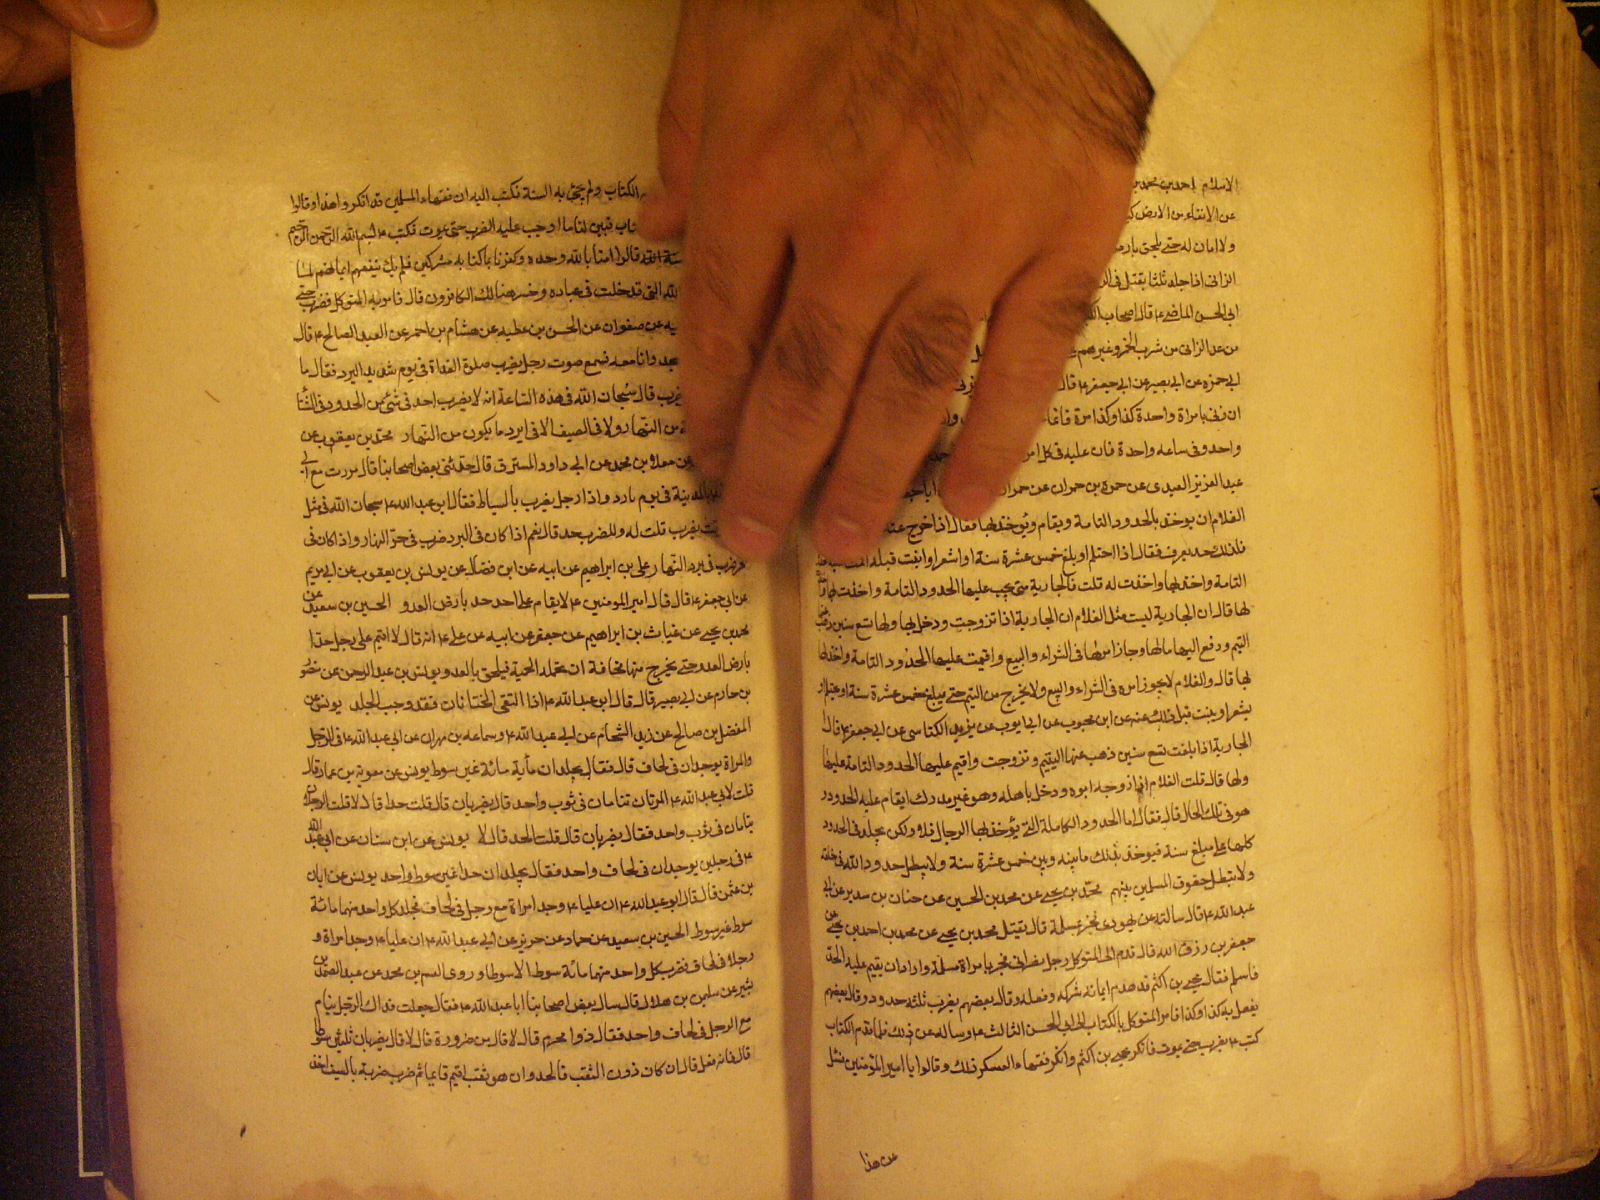 الاسلام احمد بن محمد بن
عن الانقاء من الارض
ولا امان له حتى يلحق بارض
الزانى اذا جلد ثلثا يقتل فى
ابى الحسن الماضى ع قال اصحاب
من عد الزانى من شرب الخمر وغيرهم
ابى حمزه عن ابى بصير عن ابى جعفر ع قال
ان زنى بامراة واحدة كذا وكذا مرة فانما
واحد وفى ساعه واحدة فان عليه فى كل امر
عبد العزيز العبدى عن حمزه بن حمران عن حمران
الغلام ان يوخذ بالحدود التامة ويقام ويوخذ بها فقال اذا خرج عنه
قلت فلذلك حد يعرف فقال اذا احتلم او بلغ خمس عشرة سنة او اشعر او انبت قبل
التامة واخذ بها واخذت له قلت فالجارية متى يجب عليها الحدود التامة واخذت لها
لها قال ان الجارية ليست مثل الغلام ان الجارية اذا تزوجت ودخل بها ولها تسع سنين
اليتم ودفع اليها مالها وجاز امرها فى الشراء والبيع واقيمت عليها الحدود التامة واخذ لها
بها قال والغلام لا يجوز امره فى الشراء والبيع ولا يخرج من اليتم حتى يبلغ خمس عشرة سنة او يحتلم او
يشعر او ينبت قبل ذلك عنه عن ابن محبوب عن ابى ايوب عن يزيد الكناسى عن ابى جعفر ع قال
الجارية اذا بلغت تسع سنين ذهب عنها اليتم وتزوجت واقيم عليها الحدود التامة عليها
ولها قال قلت الغلام اذا زوجه ابوه ودخل باهله وهو غير مدرك ايقام عليه الحدود و
هو فى تلك الحال قال فقال اما الحدود الكاملة التى يؤخذ بها الرجال فلا ولكن يجلد فى الحدود
كلها على مبلغ سنه فيوخذ بذلك ما بينه وبين خمس عشرة سنة ولا يبطل حدود الله فى خلقه
ولا تبطل حقوق المسلمين بينهم محمد بن يحيى عن محمد بن الحسين عن حنان بن سدير عن ابى
عبد الله ع قال سالته عن يهودى فجر بمسلمة قال يقتل محمد بن يحيى عن محمد بن احمد بن يحيى عن
جعفر بن رزق الله قال قدم الى المتوكل رجل نصرانى فجر بامراة مسلمة واراد ان يقيم عليه الحد
فاسلم فقال يحيى بن اكثم قد هدم ايمانه شركه وفعله وقال بعضهم يضرب ثلثه حدود وقال بعضهم
يفعل به كذا وكذا فامر المتوكل بالكتاب الى ابى الحسن الثالث ع وساله عن ذلك فلما قدم الكتاب
كتب ع يضرب حتى يموت فانكر يحيى بن اكثم وانكر فقهاء العسكر ذلك وقالوا يا امير المؤمنين نسئل
عن هذا
الكتاب ولم يجئ به السنة فكتب اليه ان فقهاء المسلمين قد انكروا هذا وقالوا
كتاب فبين لنا ما اوجب عليه الضرب حتى يموت فكتب ع بسم الله الرحمن الرحيم
قالوا امنا بالله وحده وكفرنا بما كنا به مشركين فلم يك ينفعهم ايمانهم لما
الله التى قد خلت فى عباده وخسر هنالك الكافرون قال فامر به المتوكل فضرب حتى
عن صفوان عن الحسن بن عطيه عن هشام بن احمر عن العبد الصالح ع قال
وانا معه فسمع صوت رجل يضرب صلوة الغداة فى يوم شديد البرد فقال ما
يضرب قال سبحان الله فى هذه الساعة انه لا يضرب احد فى شئ من الحدود فى الشتا
من النهار ولا فى الصيف الا فى ابرد ما يكون من النهار محمد بن يعقوب عن
عن معلى بن محمد عن ابى داود المسترق قال حدثنى بعض اصحابنا قال مررت مع ابى
بالمدينة فى يوم بارد واذا رجل يضرب بالسياط فقال ابو عبد الله ع سبحان الله فى مثل
يضرب قلت له وللضرب حد قال نعم اذا كان فى البرد ضرب فى حر النهار واذا كان فى
ضرب فى برد النهار على بن ابراهيم عن ابيه عن ابن فضال عن يونس بن يعقوب عن ابى مريم
عن ابى جعفر ع قال قال امير المؤمنين ع لا يقام على احد حد بارض العدو الحسين بن سعيد عن
محمد بن يحيى عن غياث بن ابراهيم عن جعفر عن ابيه عن على ع انه قال لا اقيم على رجل حدا
بارض العدو حتى يخرج منها مخافة ان تحمله الحمية فيلحق بالعدو يونس بن عبد الرحمن عن منصور
بن حازم عن ابى بصير قال قال ابو عبد الله ع اذا التقى الختانان فقد وجب الجلد يونس عن
المفضل بن صالح عن زيد الشحام عن ابى عبد الله ع وسماعه بن مهران عن ابى عبد الله ع فى الرجل
والمراة يوجدان فى لحاف قال فقال يجلدان مأية مائة غير سوط يونس عن معوية بن عمار قال
قلت لابى عبد الله ع المرتان تنامان فى ثوب واحد قال يضربان قال قلت حدا قال لا قلت الرجلان
ينامان فى ثوب واحد فقال يضربان قال قلت الحد قال لا يونس عن ابن سنان عن ابى عبد الله
ع فى رجلين يوجدان فى لحاف واحد فقال يجلدان حدا غير سوط واحد يونس عن ابان
بن عثمن قال قال ابو عبد الله ع ان عليا ع وجد امراة مع رجل فى لحاف فجلد كل واحد منهما مائة
سوط غير سوط الحسين بن سعيد عن حماد عن حريز عن ابى عبد الله ع ان عليا ع وجد امراة و
رجلا فى لحاف فضرب كل واحد منهما مائة سوط الا سوطا وروى القسم بن محمد عن عبد الصمد بن
بشير عن سليمن بن هلال قال سال بعض اصحابنا ابا عبد الله ع فقال جعلت فداك الرجل ينام
مع الرجل فى لحاف واحد فقال ذوا محرم قال لا قال من ضرورة قال لا قال يضربان ثلثين سوطا
قال فانه فعل قال ان كان دون الثقب فالحد وان هو ثقب اقيم قائما ثم ضرب ضربة بالسيف اخذ